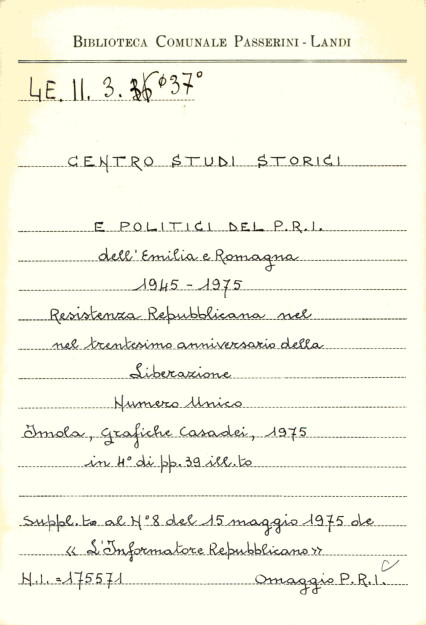 BIBLIOTECA COMUNALE PASSERINI - LANDI
4E. II. 3. 37°
CENTRO STUDI STORICI
E POLITICI DEL P.R.I.
dell'Emilia e Romagna
1945 - 1975
Resistenza Repubblicana nel
nel trentesimo anniversario della
Liberazione
Numero Unico
Imola, Grafiche Casadei, 1975
in 4° di pp. 39 ill.to
Suppl.to al N° 8 del 15 maggio 1975 de
« L'Informatore Repubblicano »
N.I. = 175571 Omaggio P.R.I.